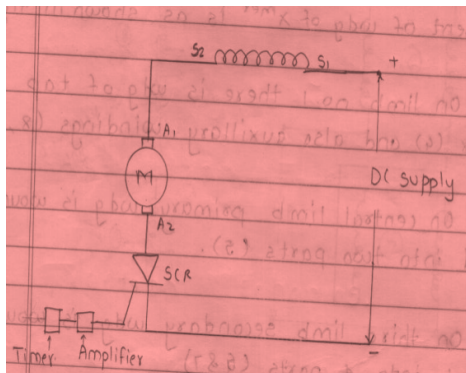 S2 S1 +
A1
M
DC Supply
A2
SCR
Timer Amplifier -